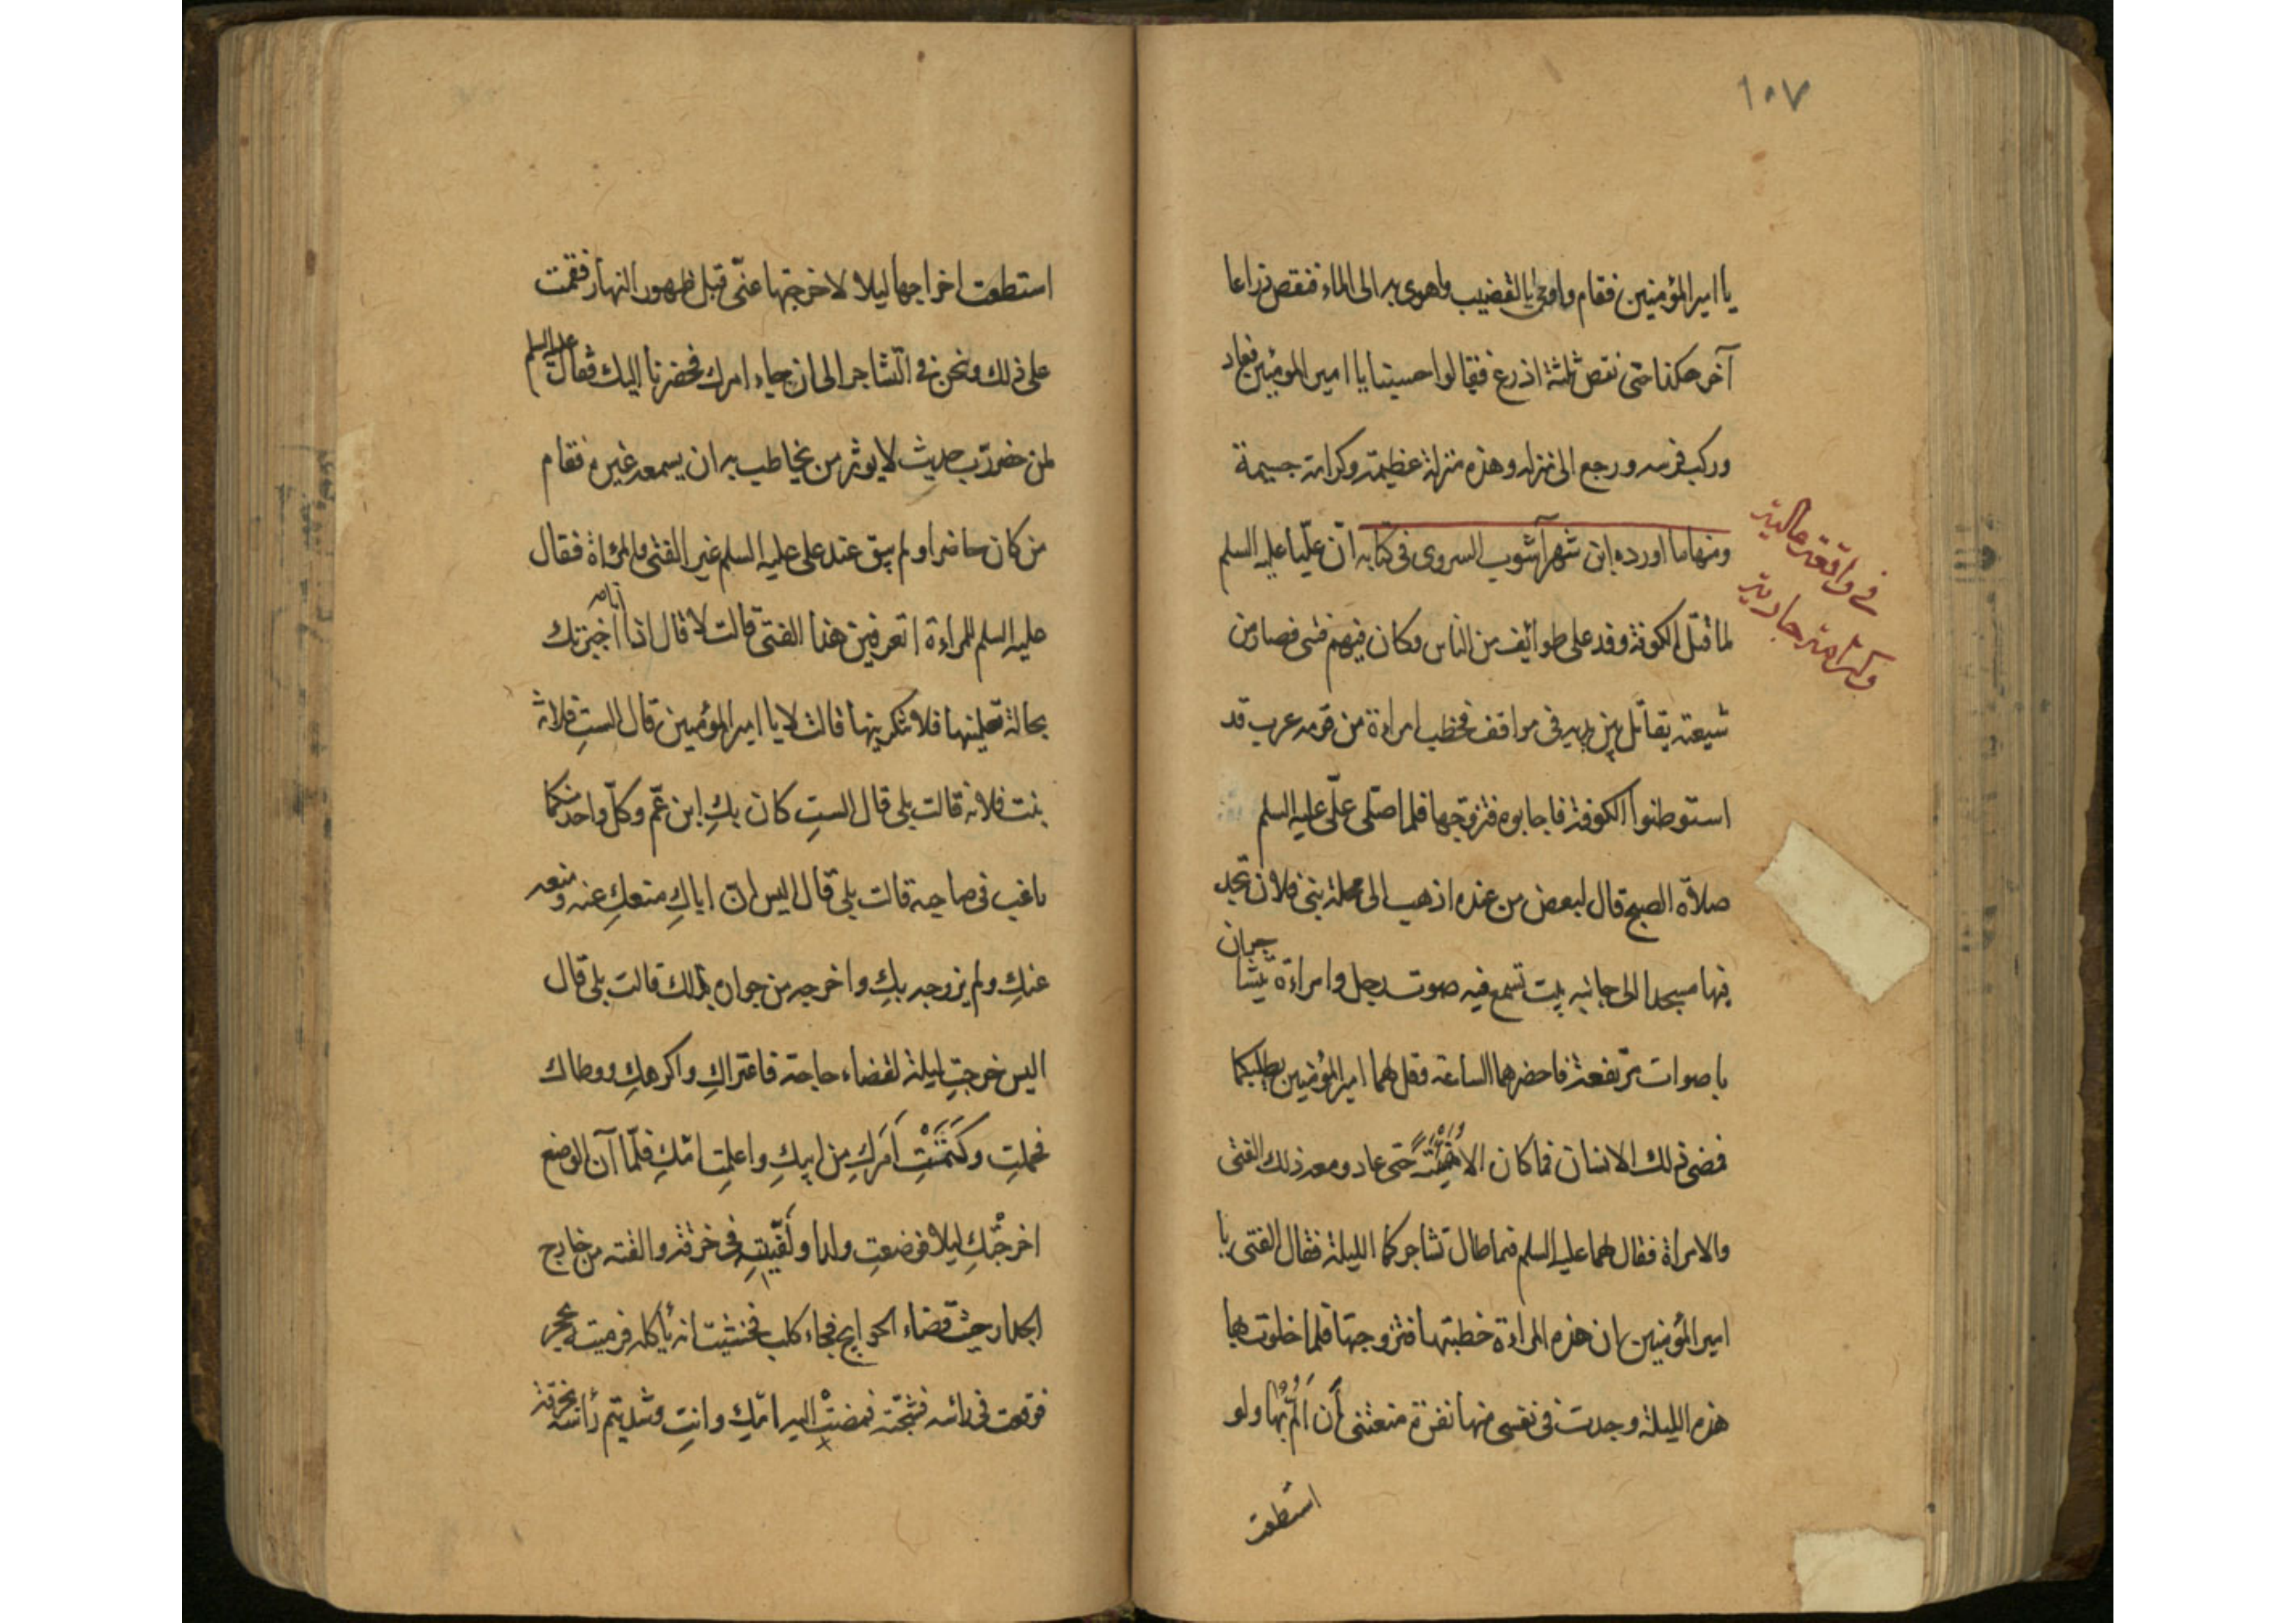 ١٠٧
يا امير المؤمنين فقام واومى بالقضيب واهوى به الى الماء فنقص ذراعا
آخر هكذا حتى نقص ثلثة اذرع فقالوا حسبنا يا امير المؤمنين فعاد
وركب فرسه ورجع الى منزله وهذه منزلة عظيمة وكرامة جسيمة
ومنها ما اورده ابن شهرآشوب السروى فى كتابه انّ عليّا عليه السلم
فى واقعة حالية
وكرامة جارية
لما قبل الكوفة وفد على طوائف من الناس وكان فيهم فتى فصار من
شيعته يقاتل بين يديه فى مواقف فخطب امراءة من قومه عرب قد
استوطنوا الكوفة فاجابوه فتزوّجها فلما صلّى علّى عليه السلم
صلاة الصبح قال لبعض من عنده اذهب الى محلة بنى فلان تجد
فيها مسجدا الى جانبه بيت تسمع فيه صوت رجل وامراءة يتشاجران
باصوات مرتفعة فاحضرهما الساعة وقل لهما امير المؤمنين يطلبكما
فمضى ذلك الانسان فما كان الا هُنَيْئَةً حتى عاد ومعه ذلك الفتى
والامراة فقال لهما عليه السلم فيما طال تشاجركما الليلة فقال الفتى يا
امير المؤمنين ان هذه المراءة خطبتها فتزوجتها فلما خلوت بها
هذه الليلة وجدت فى نفسى منها نفرة منعتنى أن اَلُمَّ بها ولو
استطعت
استطعت اخراجها ليلا لاخرجتها عنّى قبل ظهور النهار فقمت
على ذلك ونحن فى التشاجر الى ان جاء امرك فحضرنا اليك فقال عليه السلم
لمن حضر رُبّ حديث لا يوثر من يخاطب به ان يسمعه غيره فقام
من كان حاضرا ولم يبق عند على عليه السلم غير الفتى والمرأة فقال
عليه السلم للمراءة اتعرفين هذا الفتى قالت لا قال اذا انا اخبرتك
بحالة تعلمينها فلا تنكرينها قالت لا يا امير المؤمنين قال الستِ فلانة
بنت فلانة قالت بلى قال الستِ كان بكِ ابن عمّ وكلّ واحد منكما
راغب فى صاحبه قالت بلى قال اليس انّ اباكِ منعكِ عنه ومنعه
عنكِ ولم يزوجه بكِ واخرجه من جواره لذلك قالت بلى قال
اليس خرجتِ ليلة لقضاء حاجة فاغتراكِ واكرهكِ ووطاك
فحملتِ وكَتَمْتِ اَمرَكِ من ابيكِ واعلمتِ امّكِ فلمّا آن الوضع
اخرجتْكِ ليلا فوضعتِ ولدا ولَفّيتِه فى خرقة والقته من خارج
الجدار حيث قضاء الحوايج فجاء كلب فخشيت انه يأكله فرميته بحجر
فوقعت فى رائسه فشجّته فمضتْ اليه امّكِ وانتِ وشديتم رأسه بخرقة